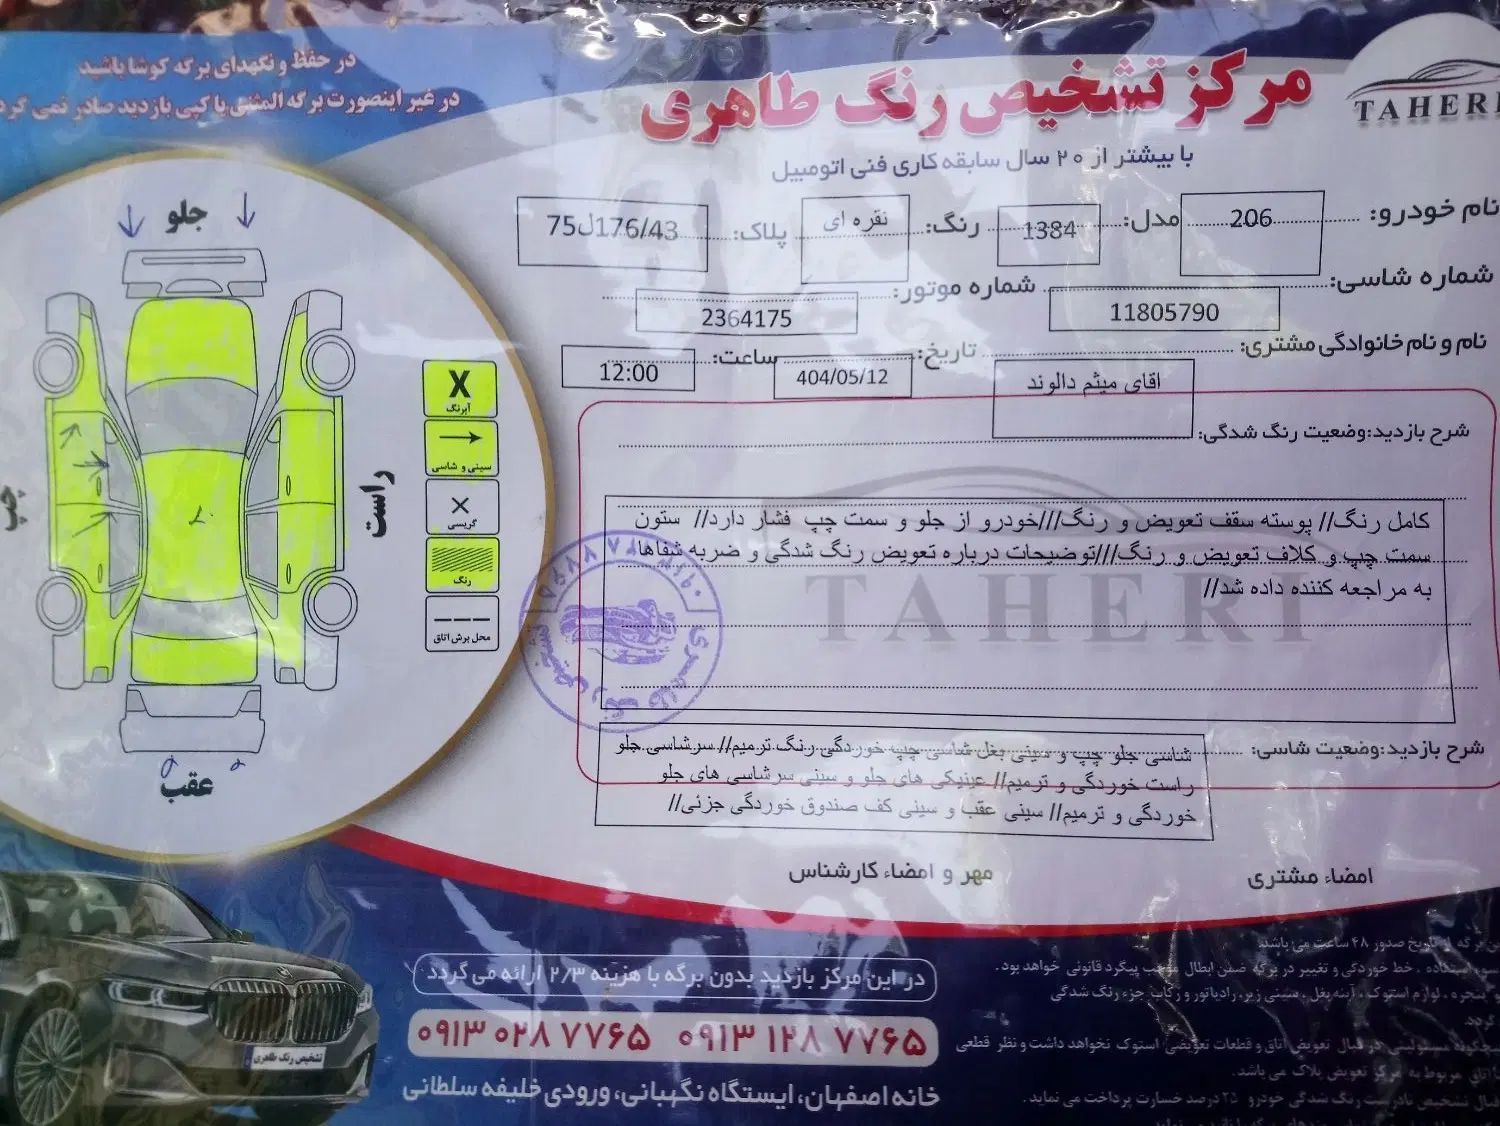 در حفظ و نگهدای برگه کوشا باشید
در غیر اینصورت برگه المثنی یا کپی بازدید صادر نمی گردد
مرکز تشخیص رنگ طاهری
TAHERI
با بیشتر از ۲۰ سال سابقه کاری فنی اتومبیل
نام خودرو: 206 مدل: 1384 رنگ: نقره ای پلاک: 75ل176/43
شماره شاسی: 11805790 شماره موتور: 2364175
نام و نام خانوادگی مشتری: اقای میثم دالوند تاریخ: 404/05/12 ساعت: 12:00
جلو
چپ
راست
عقب
X
آبرنگ
سینی و شاسی
گریسی
رنگ
محل برش اتاق
شرح بازدید:وضعیت رنگ شدگی:
کامل رنگ// پوسته سقف تعویض و رنگ///خودرو از جلو و سمت چپ فشار دارد// ستون
سمت چپ و کلاف تعویض و رنگ///توضیحات درباره تعویض رنگ شدگی و ضربه شفاها
به مراجعه کننده داده شد//
TAHERI
شرح بازدید:وضعیت شاسی:
شاسی جلو چپ و سینی بغل شاسی چپ خوردگی رنگ ترمیم// سرشاسی جلو
راست خوردگی و ترمیم// عینیکی های جلو و سینی سرشاسی های جلو
خوردگی و ترمیم// سینی عقب و سینی کف صندوق خوردگی جزئی//
امضاء مشتری
مهر و امضاء کارشناس
در این مرکز بازدید بدون برگه با هزینه ۲/۳ ارائه می گردد
۰۹۱۳ ۰۲۸ ۷۷۶۵ ۰۹۱۳ ۱۲۸ ۷۷۶۵
خانه اصفهان، ایستگاه نگهبانی، ورودی خلیفه سلطانی
تشخیص رنگ طاهری
برگه از تاریخ صدور ۴۸ ساعت می باشد.
استفاده . خط خوردگی و تغییر در برگه ضمن ابطال موجب پیگرد قانونی خواهد بود.
پنجره . لوازم استوک . آینه بغل . سینی زیر رادیاتور و رکاب جزء رنگ شدگی
گردد.
مسئولیتی در قبال تعویض اتاق و قطعات تعویضی استوک نخواهد داشت و نظر قطعی
اتاق مربوط به مرکز تعویض پلاک می باشد.
قبال تشخیص نادرست رنگ شدگی خودرو ۲۵ درصد خسارت پرداخت می نماید.